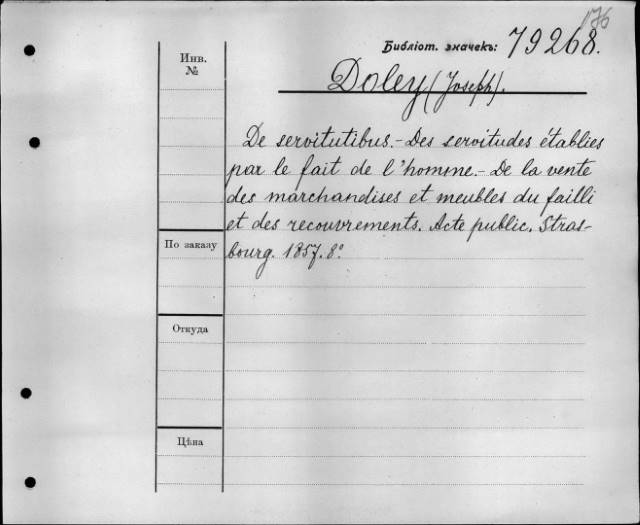 176
Библіот. значекъ: 79268.
Инв.
№
Doley (Joseph).
De servitutibus.- Des servitudes établies
par le fait de l'homme.- De la vente
des marchandises et meubles du failli
et des recouvrements. Acte public. Stras-
bourg. 1857. 8º
По заказу
Откуда
Цѣна